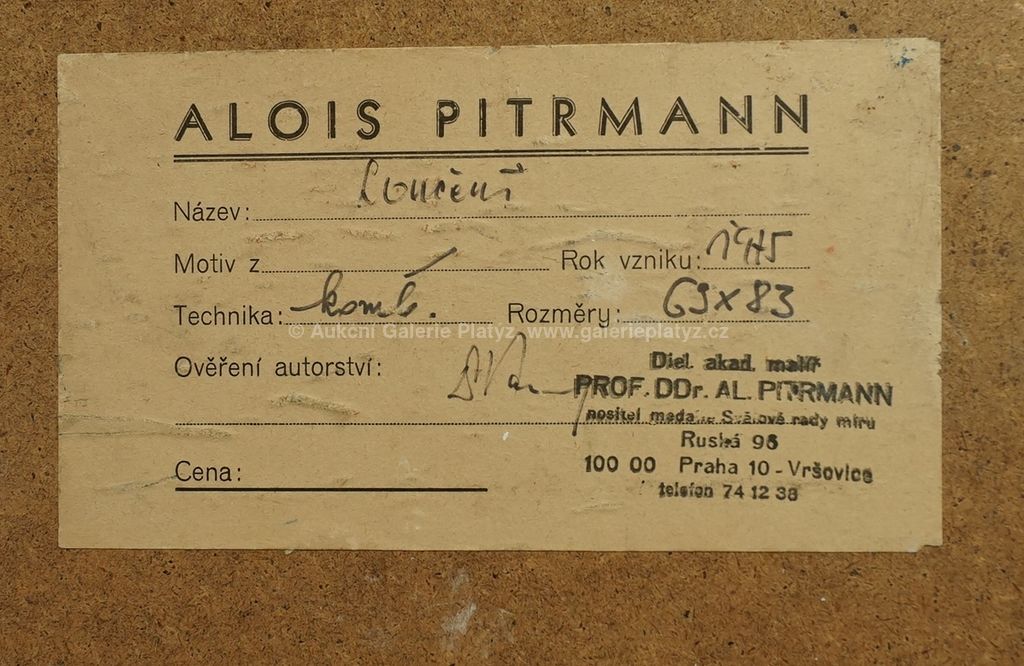 ALOIS PITRMANN
Název: Loučení
Motiv z
Rok vzniku: 1945
Technika: komb. Rozměry: 69 x 83
© Aukční Galerie Platýz, www.galerieplatyz.cz
Ověření autorství:
Dipl. akad. malíř
PROF. DDr. AL. PITRMANN
nositel medaile Světové rady míru
Ruská 96
100 00 Praha 10 - Vršovice
telefon 74 12 38
Cena: